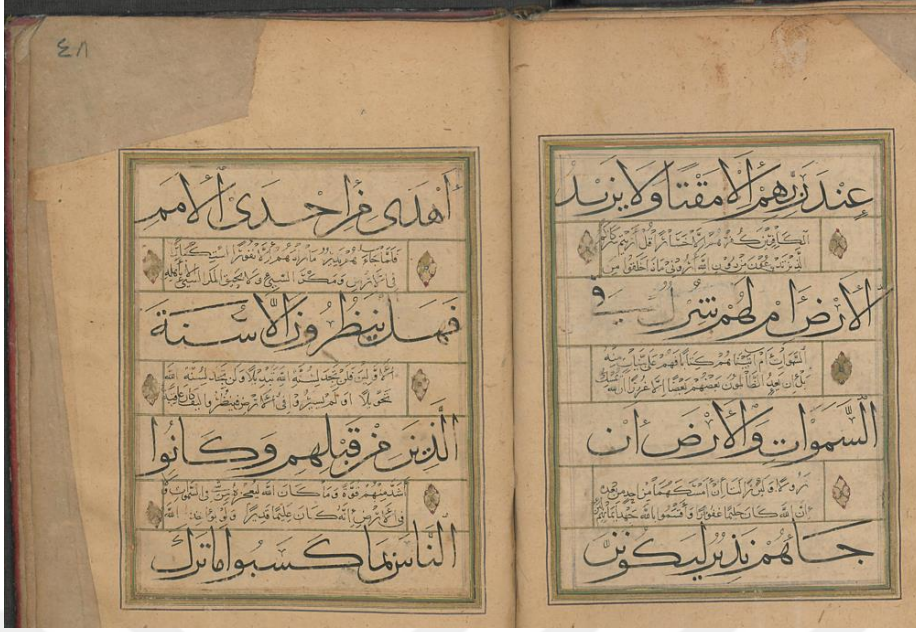 عند ربهم الا مقتا ولا يزيد
الكافرين كفرهم الا خسارا قل ارأيتم
الذين تدعون من دون الله أروني ماذا خلقوا من
الأرض ام لهم شرك في
السموات أم آتيناهم كتابا فهم على منه
بل ان يعد الظالمون بعضهم بعضا الا غرورا ان الله يمسك
السموات والأرض ان
تزولا ولئن زالتا ان أمسكهما من احد من بعده
ان الله كان حليما غفورا وأقسموا بالله جهد أيمانهم
جاهم نذير ليكونن
٤٨
أهدى من احدى الأمم
فلما جاءهم نذير ما زادهم الا نفورا استكبارا
في الارض ومكر السيئ ولا يحيق المكر السيئ الا بأهله
فهل ينظرون الا سنة
الاولين فلن تجد لسنة الله تبديلا ولن تجد لسنة الله
تحويلا اولم يسيروا في الارض فينظروا كيف كان عاقبة
الذين من قبلهم وكانوا
أشد منهم قوة وما كان الله ليعجزه من شئ في السموات ولا
في الارض انه كان عليما قديرا ولو يؤاخذ الله
الناس بما كسبوا ما ترك